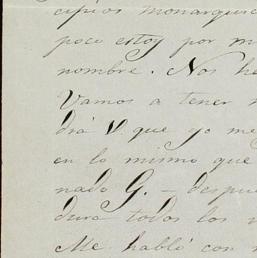 cipios monarquic
poco estoy por m
nombre. Nos he
Vamos a tener
drá V. que yo me
en lo mismo que
nado G. — despue
dura todos los
Me habló con